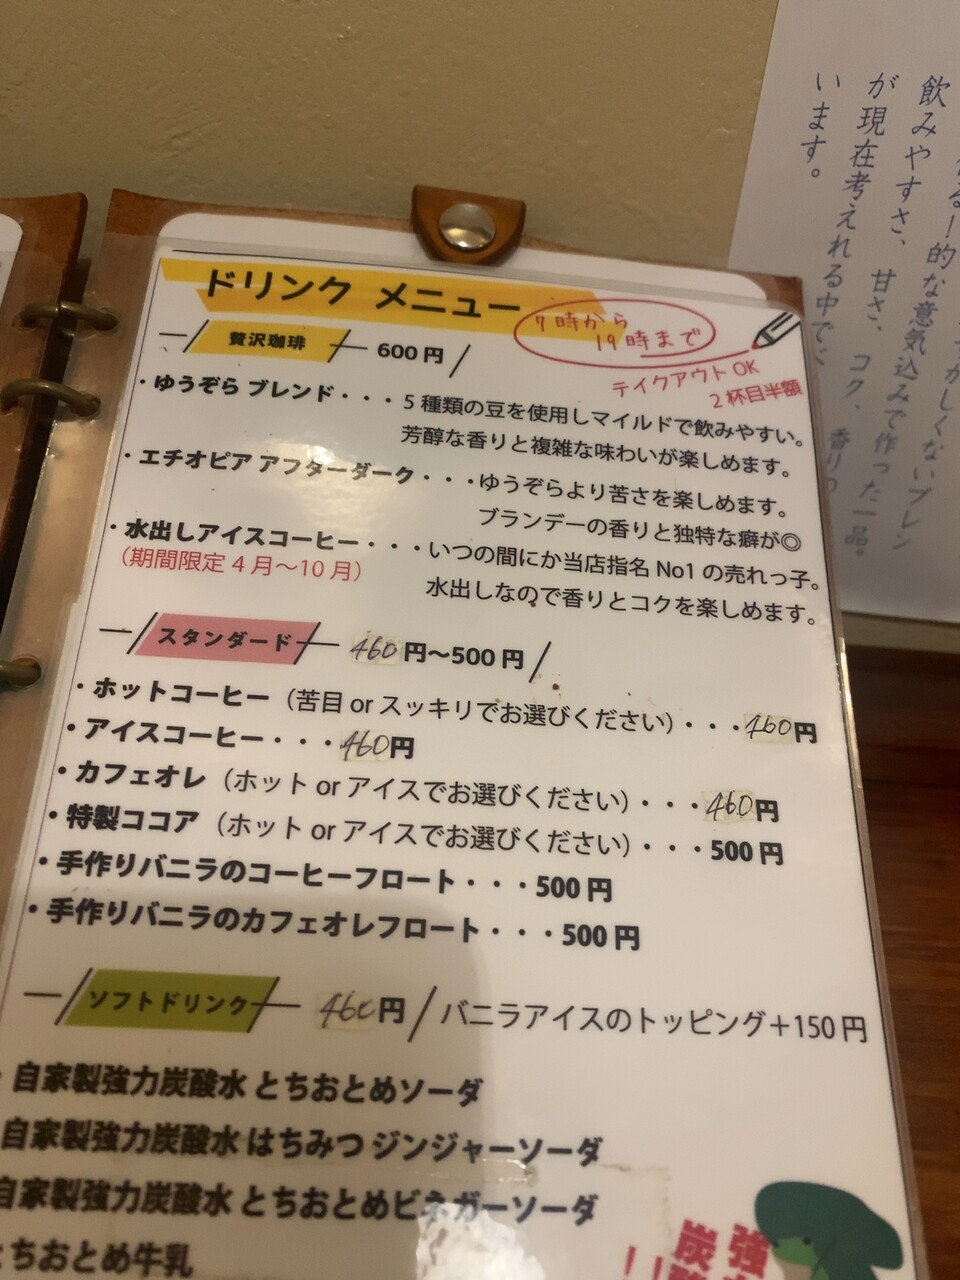 ドリンク メニュー
7時から
19時まで
テイクアウトOK
2杯目半額
贅沢珈琲 600円
・ゆうぞら ブレンド・・・5種類の豆を使用しマイルドで飲みやすい。
芳醇な香りと複雑な味わいが楽しめます。
・エチオピア アフターダーク・・・ゆうぞらより苦さを楽しめます。
ブランデーの香りと独特な癖が◎
・水出しアイスコーヒー・・・いつの間にか当店指名No1の売れっ子。
（期間限定4月～10月）
水出しなので香りとコクを楽しめます。
スタンダード 460円～500円
・ホットコーヒー（苦目 or スッキリでお選びください）・・・460円
・アイスコーヒー・・・460円
・カフェオレ（ホット or アイスでお選びください）・・・460円
・特製ココア（ホット or アイスでお選びください）・・・500円
・手作りバニラのコーヒーフロート・・・500円
・手作りバニラのカフェオレフロート・・・500円
ソフトドリンク 460円 バニラアイスのトッピング＋150円
・自家製強力炭酸水 とちおとめソーダ
自家製強力炭酸水 はちみつ ジンジャーソーダ
自家製強力炭酸水 とちおとめビネガーソーダ
とちおとめ牛乳
強
炭
!!
る！的な意気込みで作った一品。
かしくないブレン
飲みやすさ、甘さ、コク、香り
が現在考えれる中で
います。